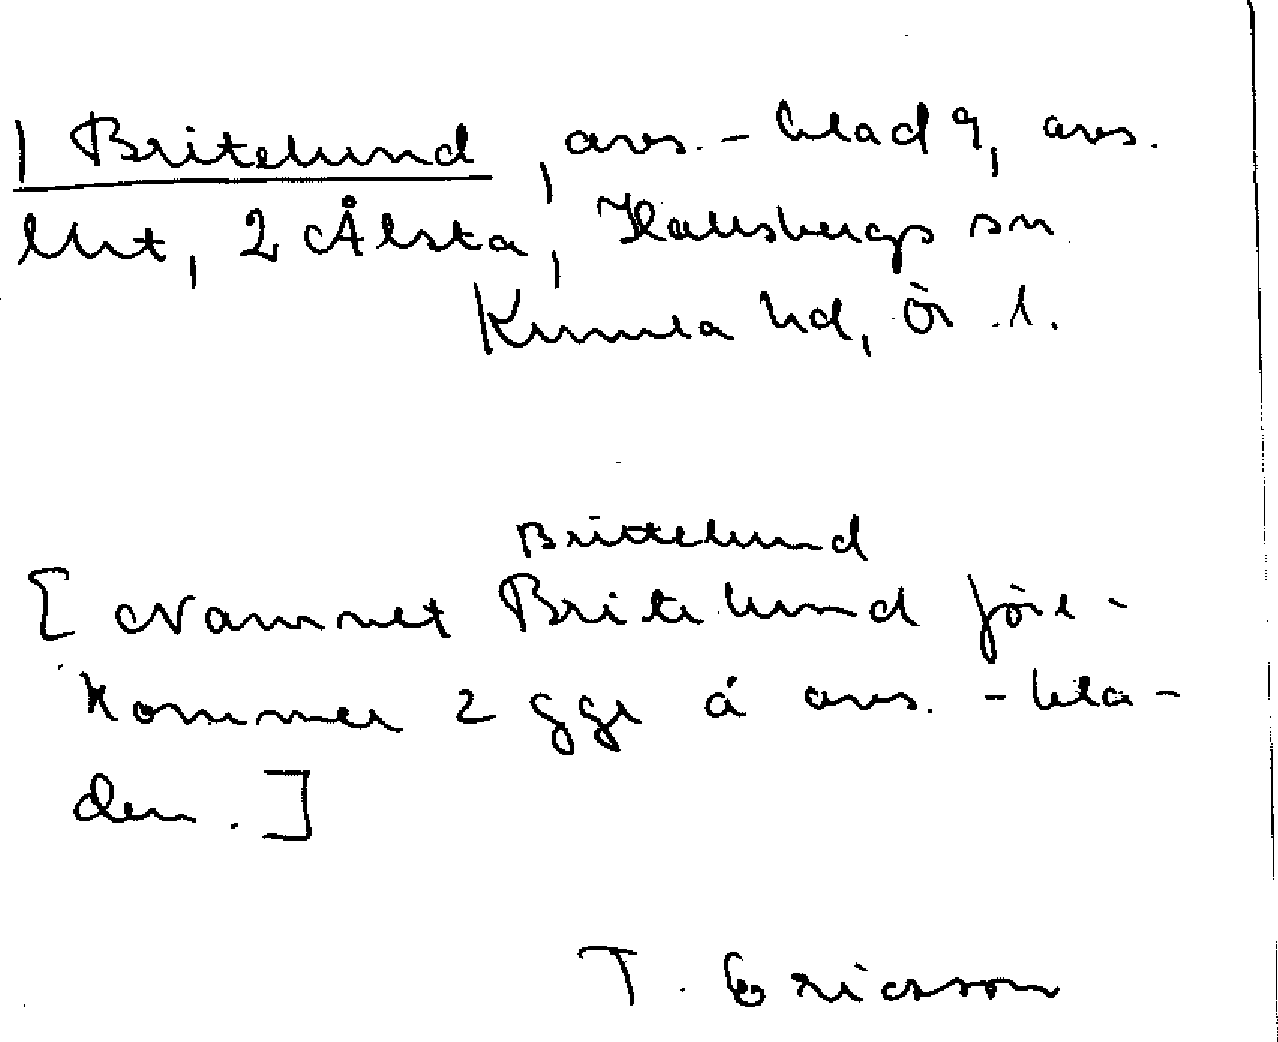 | Britelund, avs.-blad 9, avs.
litt, 2 Ålsta, Hallsbergs sn
Kumla hd, Ör. l.
Brittelund
[Namnet Britelund före-
kommer 2 ggr å avs.-bla-
den.]
T. Ericsson